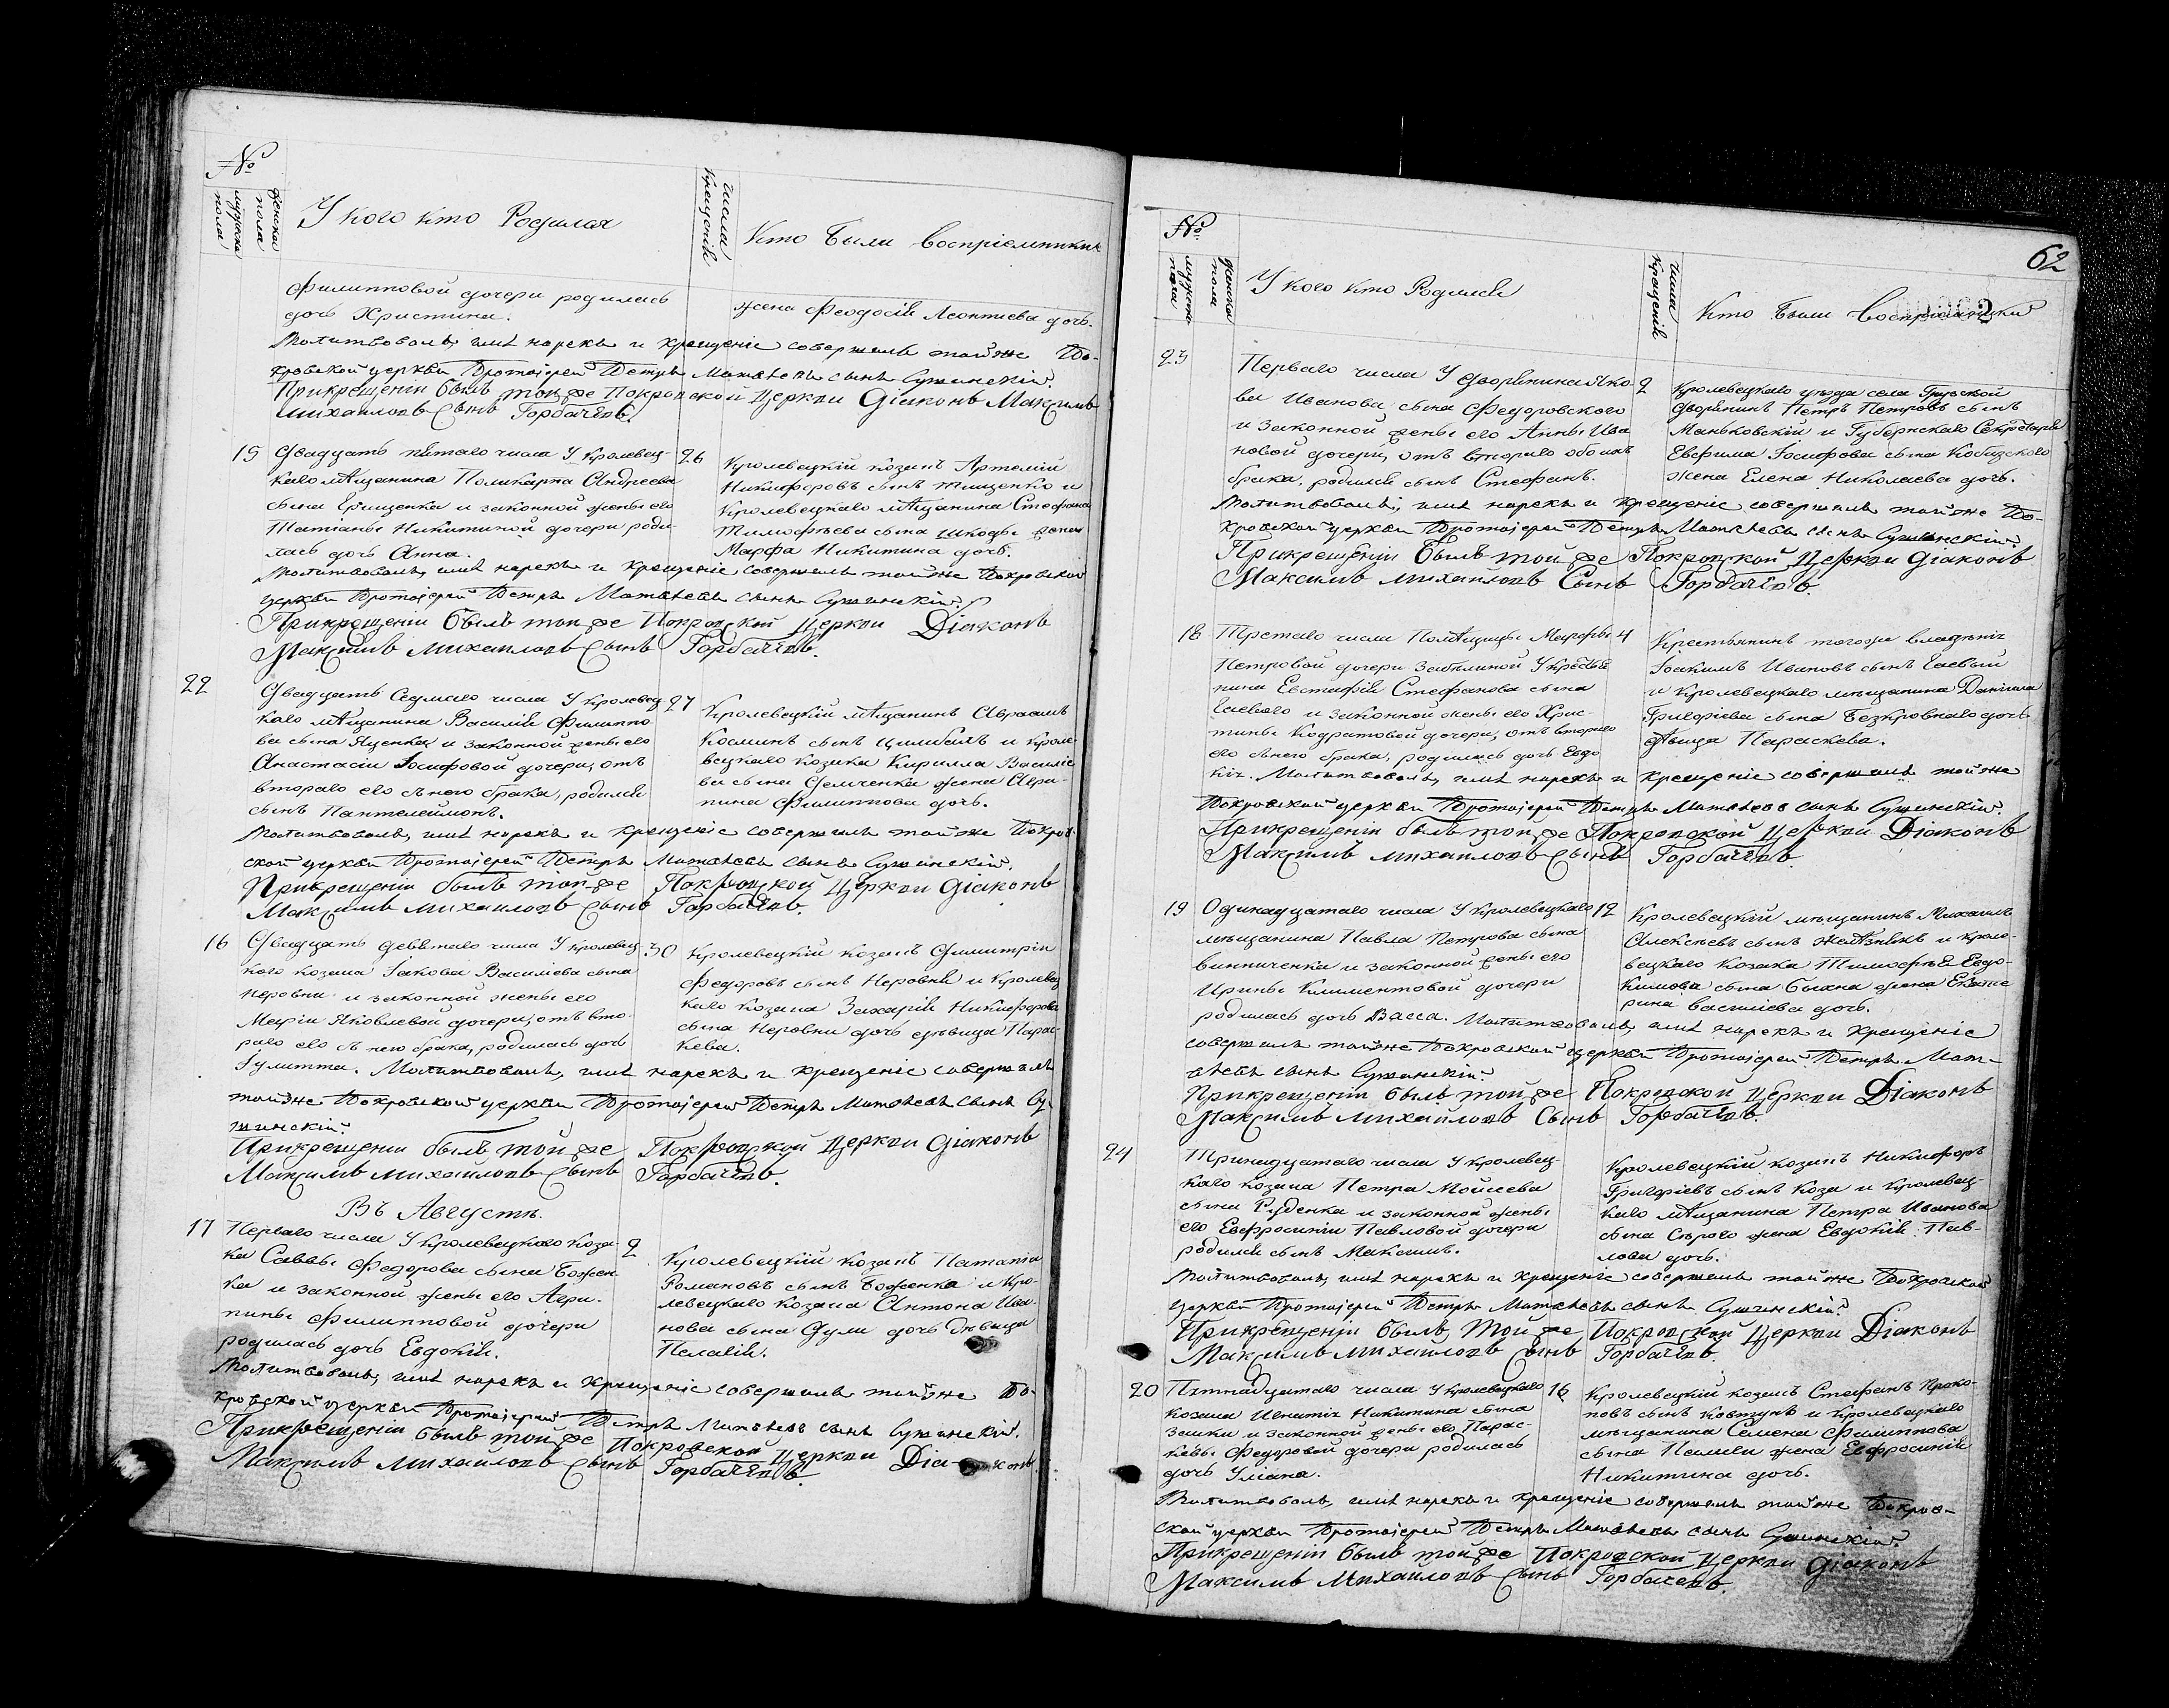 №
мужска пола
женска пола
У кого кто Родился
числа крещенія
Кто Были Воспріемники
Филипповой дочери родилась
дочь Христина.
жена Феодосія Леонтиева дочь.
Молитвовалъ, имя нарекъ и крещеніе совершилъ тойже По-
кровской церкви Протоіерей Петръ Матвѣевъ сынъ Сушинскій.
При крещеніи былъ той же Покровской Церкви Діаконъ Максимъ
Михаиловъ Сынъ Горбачевъ.
15
Двадцать пятаго числа У Кролевец-
каго мѣщанина Поликарпа Андреева
сына Грищенка и законной жены его
Татіаны Никитиной дочери роди-
лась дочь Анна.
26
Кролевецкій козакъ Артемій
Никифоровъ сынъ Тищенко и
Кролевецкаго мѣщанина Стефана
Тимофѣева сына Шкоды жена
Марфа Никитина дочь.
Молитвовалъ, имя нарекъ и крещеніе совершилъ тойже Покровской
церкви Протоіерей Петръ Матвѣевъ сынъ Сушинскій.
При крещеніи былъ той же Покровской Церкви Діаконъ
Максимъ Михаиловъ Сынъ Горбачевъ.
22
Двадцать Седмаго числа У Кролевец-
каго мѣщанина Василія Филиппо-
ва сына Яценка и законной жены его
Анастасіи Іосифовой дочери, отъ
втораго его съ нею брака, родился
сынъ Пантелеймонъ.
27
Кролевецкій мѣщанинъ Авраамъ
Косминъ сынъ Цимбалъ и Кроле-
вецкаго козака Кирилла Василіе-
ва сына Семченка жена Агри-
пина Филиппова дочь.
Молитвовалъ, имя нарекъ и крещеніе совершилъ тойже Покров-
ской церкви Протоіерей Петръ Матвѣевъ сынъ Сушинскій.
При крещеніи былъ той же Покровской Церкви Діаконъ
Максимъ Михаиловъ Сынъ Горбачевъ.
16
Двадцать девятаго числа У Кролевец-
кого козака Іакова Василіева сына
Неровни и законной жены его
Маріи Яковлевой дочери, отъ вто-
раго его съ нею брака, родилась дочь
Іулитта. Молитвовалъ, имя нарекъ и крещеніе совершилъ
30
Кролевецкій козакъ Димитрій
Федоровъ сынъ Неровня и Кролевец-
каго козака Захарія Никифорова
сына Неровни дочь дѣвица Парас-
кева.
тойже Покровской церкви Протоіерей Петръ Матвѣевъ сынъ Су-
шинскій.
При крещеніи былъ той же Покровской Церкви Діаконъ
Максимъ Михаиловъ Сынъ Горбачевъ.
Въ Августѣ.
17
Перваго числа У Кролевецкаго Коза-
ка Саввы Федорова сына Божен-
ка и законной жены его Агри-
пины Филипповой дочери
родилась дочь Евдокія.
2
Кролевецкій козакъ Патапій
Романовъ сынъ Боженко и Кро-
левецкаго козака Антона Ива-
нова сына Дули дочь Дѣвица
Пелагія.
Молитвовалъ, имя нарекъ и крещеніе совершилъ тойже По-
кровской церкви Протоіерей Петръ Матвѣевъ сынъ Сушинскій.
При крещеніи былъ той же Покровской Церкви Діаконъ
Максимъ Михаиловъ Сынъ Горбачевъ.
62
№
мужска пола
женска пола
У кого кто Родился
числа крещенія
Кто Были Воспріемники
23
Перваго числа У дворянина Яко-
ва Иванова сына Федоровского
и законной жены его Анны Ива-
новой дочери, отъ втораго обоихъ
брака, родился сынъ Стефанъ.
2
Кролевецкаго уѣзда села Грузской
дворянинъ Петръ Петровъ сынъ
Маньковскій и Губернскаго Секретаря
Евфима Іосифова сына Кобизского
жена Елена Николаева дочь.
Молитвовалъ, имя нарекъ и крещеніе совершилъ тойже По-
кровской церкви Протоіерей Петръ Матвѣевъ сынъ Сушинскій.
При крещеніи былъ той же Покровской Церкви Діаконъ
Максимъ Михаиловъ Сынъ Горбачевъ.
18
Третаго числа Помѣщицы Марфы
Петровой дочери Забѣлиной У Крестья-
нина Евстафія Стефанова сына
Гаевого и законной жены его Хрис-
тины Кодратовой дочери, отъ втораго
его съ нею брака, родилась дочь Евдо-
кія. Молитвовалъ, имя нарекъ и крещеніе совершилъ тойже
4
Крестьянинъ тогоже владѣнія
Іоакимъ Ивановъ сынъ Гаевый
и Кролевецкаго мѣщанина Даніила
Григоріева сына Безкровнаго дочь
дѣвица Параскева.
Покровской церкви Протоіерей Петръ Матвѣевъ сынъ Сушинскій.
При крещеніи былъ той же Покровской Церкви Діаконъ
Максимъ Михаиловъ Сынъ Горбачевъ.
19
Одинадцатаго числа У Кролевецкаго
мѣщанина Павла Петрова сына
Винниченка и законной жены его
Ирины Климентовой дочери
родилась дочь Васса. Молитвовалъ, имя нарекъ и крещеніе
12
Кролевецкій мѣщанинъ Михаилъ
Алексѣевъ сынъ Желѣзнякъ и Кроле-
вецкаго Козака Тимофѣя Евдо-
кимова сына Быка жена Екате-
рина Василіева дочь.
совершилъ тойже Покровской церкви Протоіерей Петръ Мат-
вѣевъ сынъ Сушинскій.
При крещеніи былъ той же Покровской Церкви Діаконъ
Максимъ Михаиловъ Сынъ Горбачевъ.
24
Тринадцатаго числа У Кролевец-
каго козака Петра Мойсеева
сына Руденка и законной жены
его Евфросиніи Павловой дочери
родился сынъ Максимъ.
Кролевецкій козакъ Никифоръ
Григоріевъ сынъ Коза и Кролевец-
каго мѣщанина Петра Иванова
сына Сѣрого жена Евдокія Пав-
лова дочь.
Молитвовалъ, имя нарекъ и крещеніе совершилъ тойже Покровской
церкви Протоіерей Петръ Матвѣевъ сынъ Сушинскій.
При крещеніи былъ той же Покровской Церкви Діаконъ
Максимъ Михаиловъ Сынъ Горбачевъ.
20
Пятнадцатаго числа У Кролевецкаго
козака Игнатія Никитина сына
Заики и законной жены его Парас-
кевы Федоровой дочери родилась
дочь Уліана.
16
Кролевецкій козакъ Стефанъ Проко-
повъ сынъ Ковтунъ и Кролевецкаго
мѣщанина Семена Филиппова
сына жена Евфросинія
Никитина дочь.
Молитвовалъ, имя нарекъ и крещеніе совершилъ тойже Покров-
ской церкви Протоіерей Петръ Матвѣевъ сынъ Сушинскій.
При крещеніи былъ той же Покровской Церкви Діаконъ
Максимъ Михаиловъ Сынъ Горбачевъ.